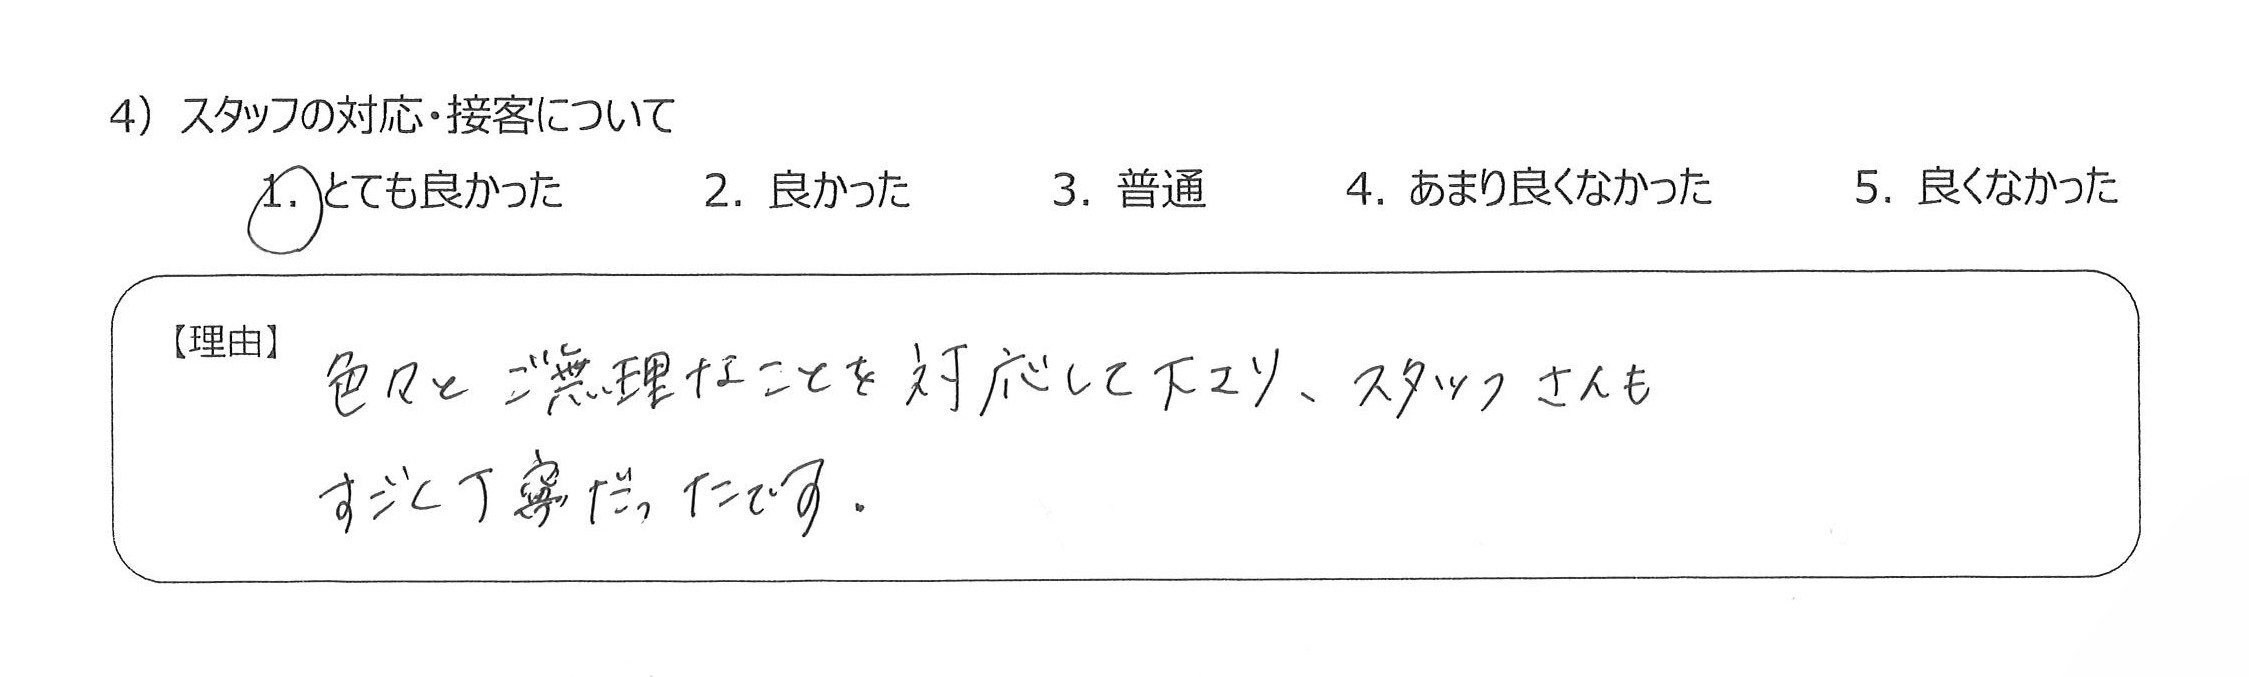 4) スタッフの対応・接客について
1. とても良かった 2. 良かった 3. 普通 4. あまり良くなかった 5. 良くなかった
【理由】
色々とご無理なことを対応して下エリ、スタッフさんも
すごく丁寧だったです.